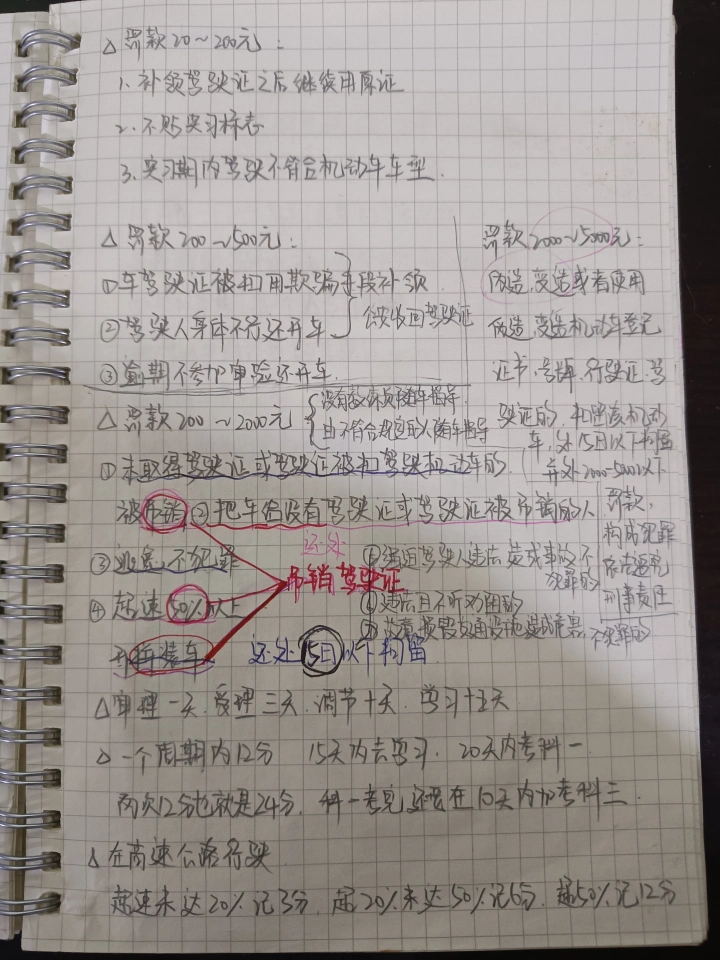 △罚款20~200元:
1、补领驾驶证之后继续用原证
2、不贴实习标志
3、实习期内驾驶不符合机动车车型.
△罚款200~500元:
①车驾驶证被扣用欺骗手段补领
②驾驶人身体不行还开车
公安收回驾驶证
③逾期不参加审验还开车.
罚款2000~5000元:
伪造,变造或者使用
伪造,变造机动车登记
证书,号牌,行驶证,驾
驶证的,扣留该机动
车,处15日以下拘留
并处2000-5000以下
罚款,
构成犯罪
依法追究
刑事责任
△罚款200~2000元
没有教练员随车指导
由不符合规定的人随车指导
①未取得驾驶证或驾驶证被扣驾驶机动车的
被吊销 ②把车给没有驾驶证或驾驶证被吊销的人
③逃逸不犯罪
还处
吊销驾驶证
④超速50%以上
开拼装车
⑤强迫驾驶人违法造成事故不
犯罪的
⑥违法且不听劝阻的
⑦故意损害交通设施造成后果,不犯罪的
还处15日以下拘留
△审理一天,受理三天,调节十天,学习十五天
△一个周期内12分 15天内去学习. 20天内考科一
两次12分也就是24分,科一考完还要在10天内加考科三.
△在高速公路行驶
超速未达20%记3分,超20%未达50%记6分,超50%记12分